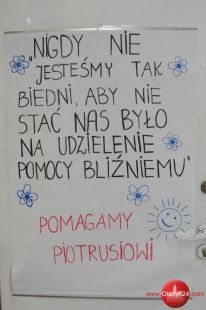 "NIGDY NIE
"JESTEŚMY TAK
BIEDNI, ABY NIE
STAĆ NAS BYŁO
NA UDZIELENIE
POMOCY BLIŹNIEMU"
POMAGAMY
PIOTRUSIOWI
www.Olsztyn24.com